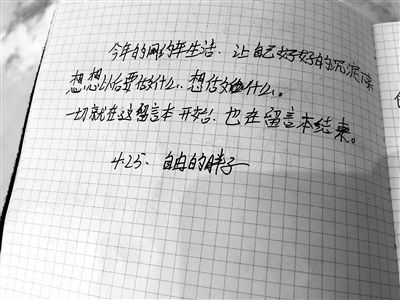 今年的网约车生活,让自己好好的沉淀下来
想想以后要做什么,想做做什么。
一切就在这留言本开始,也在留言本结束。
4.25. 自由的胖子